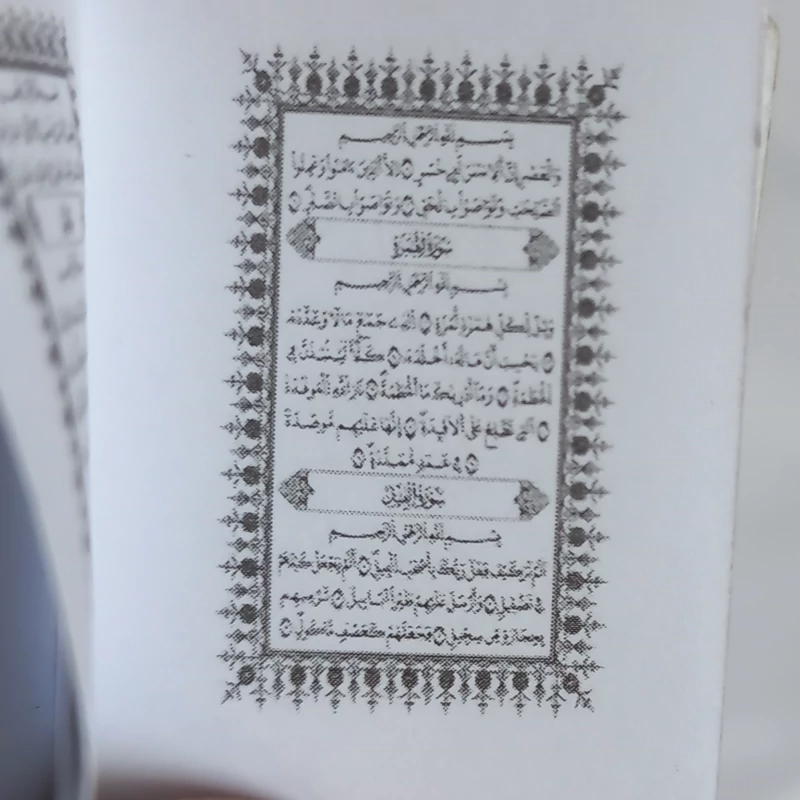 بِسْمِ اللَّهِ الرَّحْمَٰنِ الرَّحِيمِ
وَالْعَصْرِ إِنَّ الْإِنسَانَ لَفِي خُسْرٍ ۝ إِلَّا الَّذِينَ ءَامَنُوا وَعَمِلُوا
الصَّالِحَاتِ وَتَوَاصَوْا بِالْحَقِّ ۝ وَتَوَاصَوْا بِالصَّبْرِ ۝
سُورَةُ الْهُمَزَةِ
بِسْمِ اللَّهِ الرَّحْمَٰنِ الرَّحِيمِ
وَيْلٌ لِّكُلِّ هُمَزَةٍ لُّمَزَةٍ ۝ الَّذِي جَمَعَ مَالًا وَعَدَّدَهُ
۝ يَحْسِبُ أَنَّ مَالَهُ أَخْلَدَهُ ۝ كَلَّا لَيُنبَذَنَّ فِي
الْحُطَمَةِ ۝ وَمَا أَدْرَاكَ مَا الْحُطَمَةُ ۝ نَارُ اللَّهِ الْمُوقَدَةُ
۝ الَّتِي تَطَّلِعُ عَلَى الْأَفْئِدَةِ ۝ إِنَّهَا عَلَيْهِم مُّؤْصَدَةٌ
۝ فِي عَمَدٍ مُّمَدَّدَةٍ ۝
سُورَةُ الْفِيلِ
بِسْمِ اللَّهِ الرَّحْمَٰنِ الرَّحِيمِ
أَلَمْ تَرَ كَيْفَ فَعَلَ رَبُّكَ بِأَصْحَابِ الْفِيلِ ۝ أَلَمْ يَجْعَلْ كَيْدَهُمْ
فِي تَضْلِيلٍ ۝ وَأَرْسَلَ عَلَيْهِمْ طَيْرًا أَبَابِيلَ ۝ تَرْمِيهِم
بِحِجَارَةٍ مِّن سِجِّيلٍ ۝ فَجَعَلَهُمْ كَعَصْفٍ مَّأْكُولٍ ۝